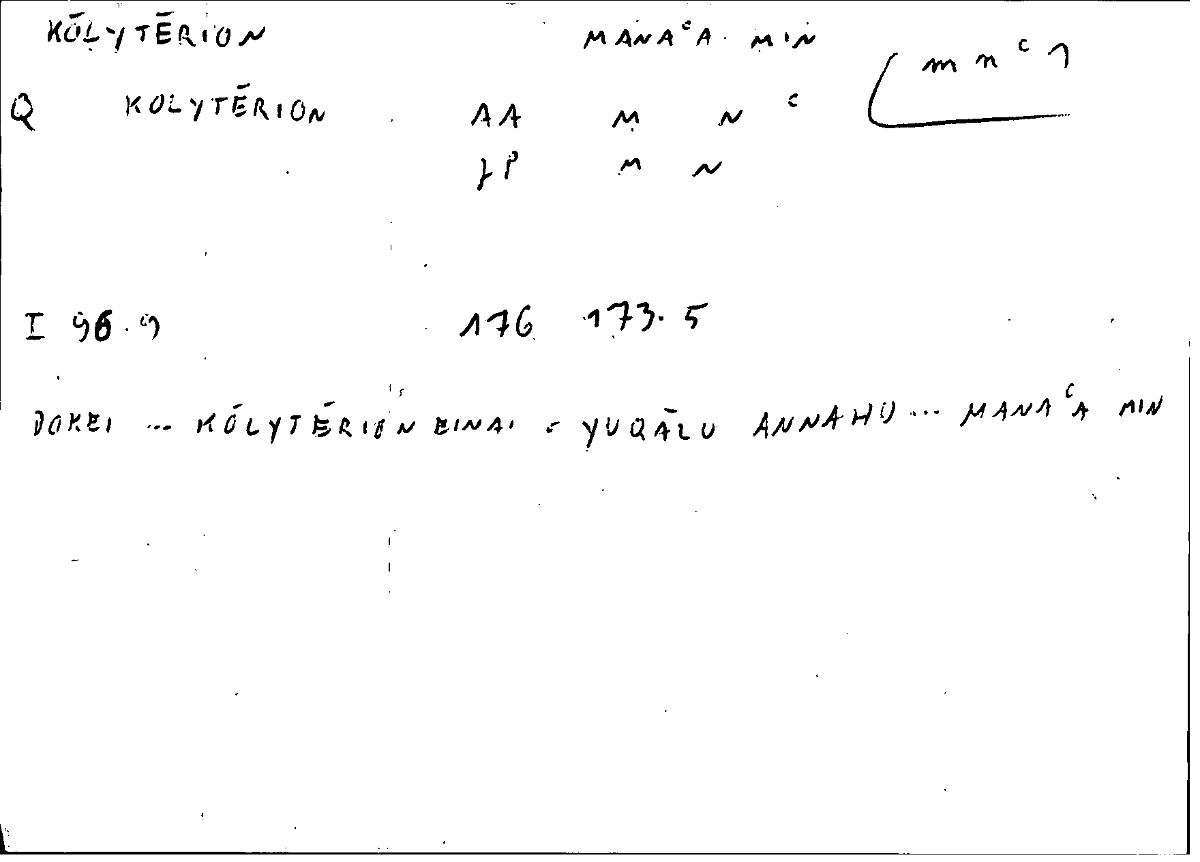 KŌLYTĒRION MANAᶜA MIN
(m n ᶜ 1
Q KOLYTĒRION AA M N ᶜ
M N
I 96.9 176 173.5
DOKEI ... KŌLYTĒRION EINAI = YUQĀLU ANNAHU ... MANAᶜA MIN